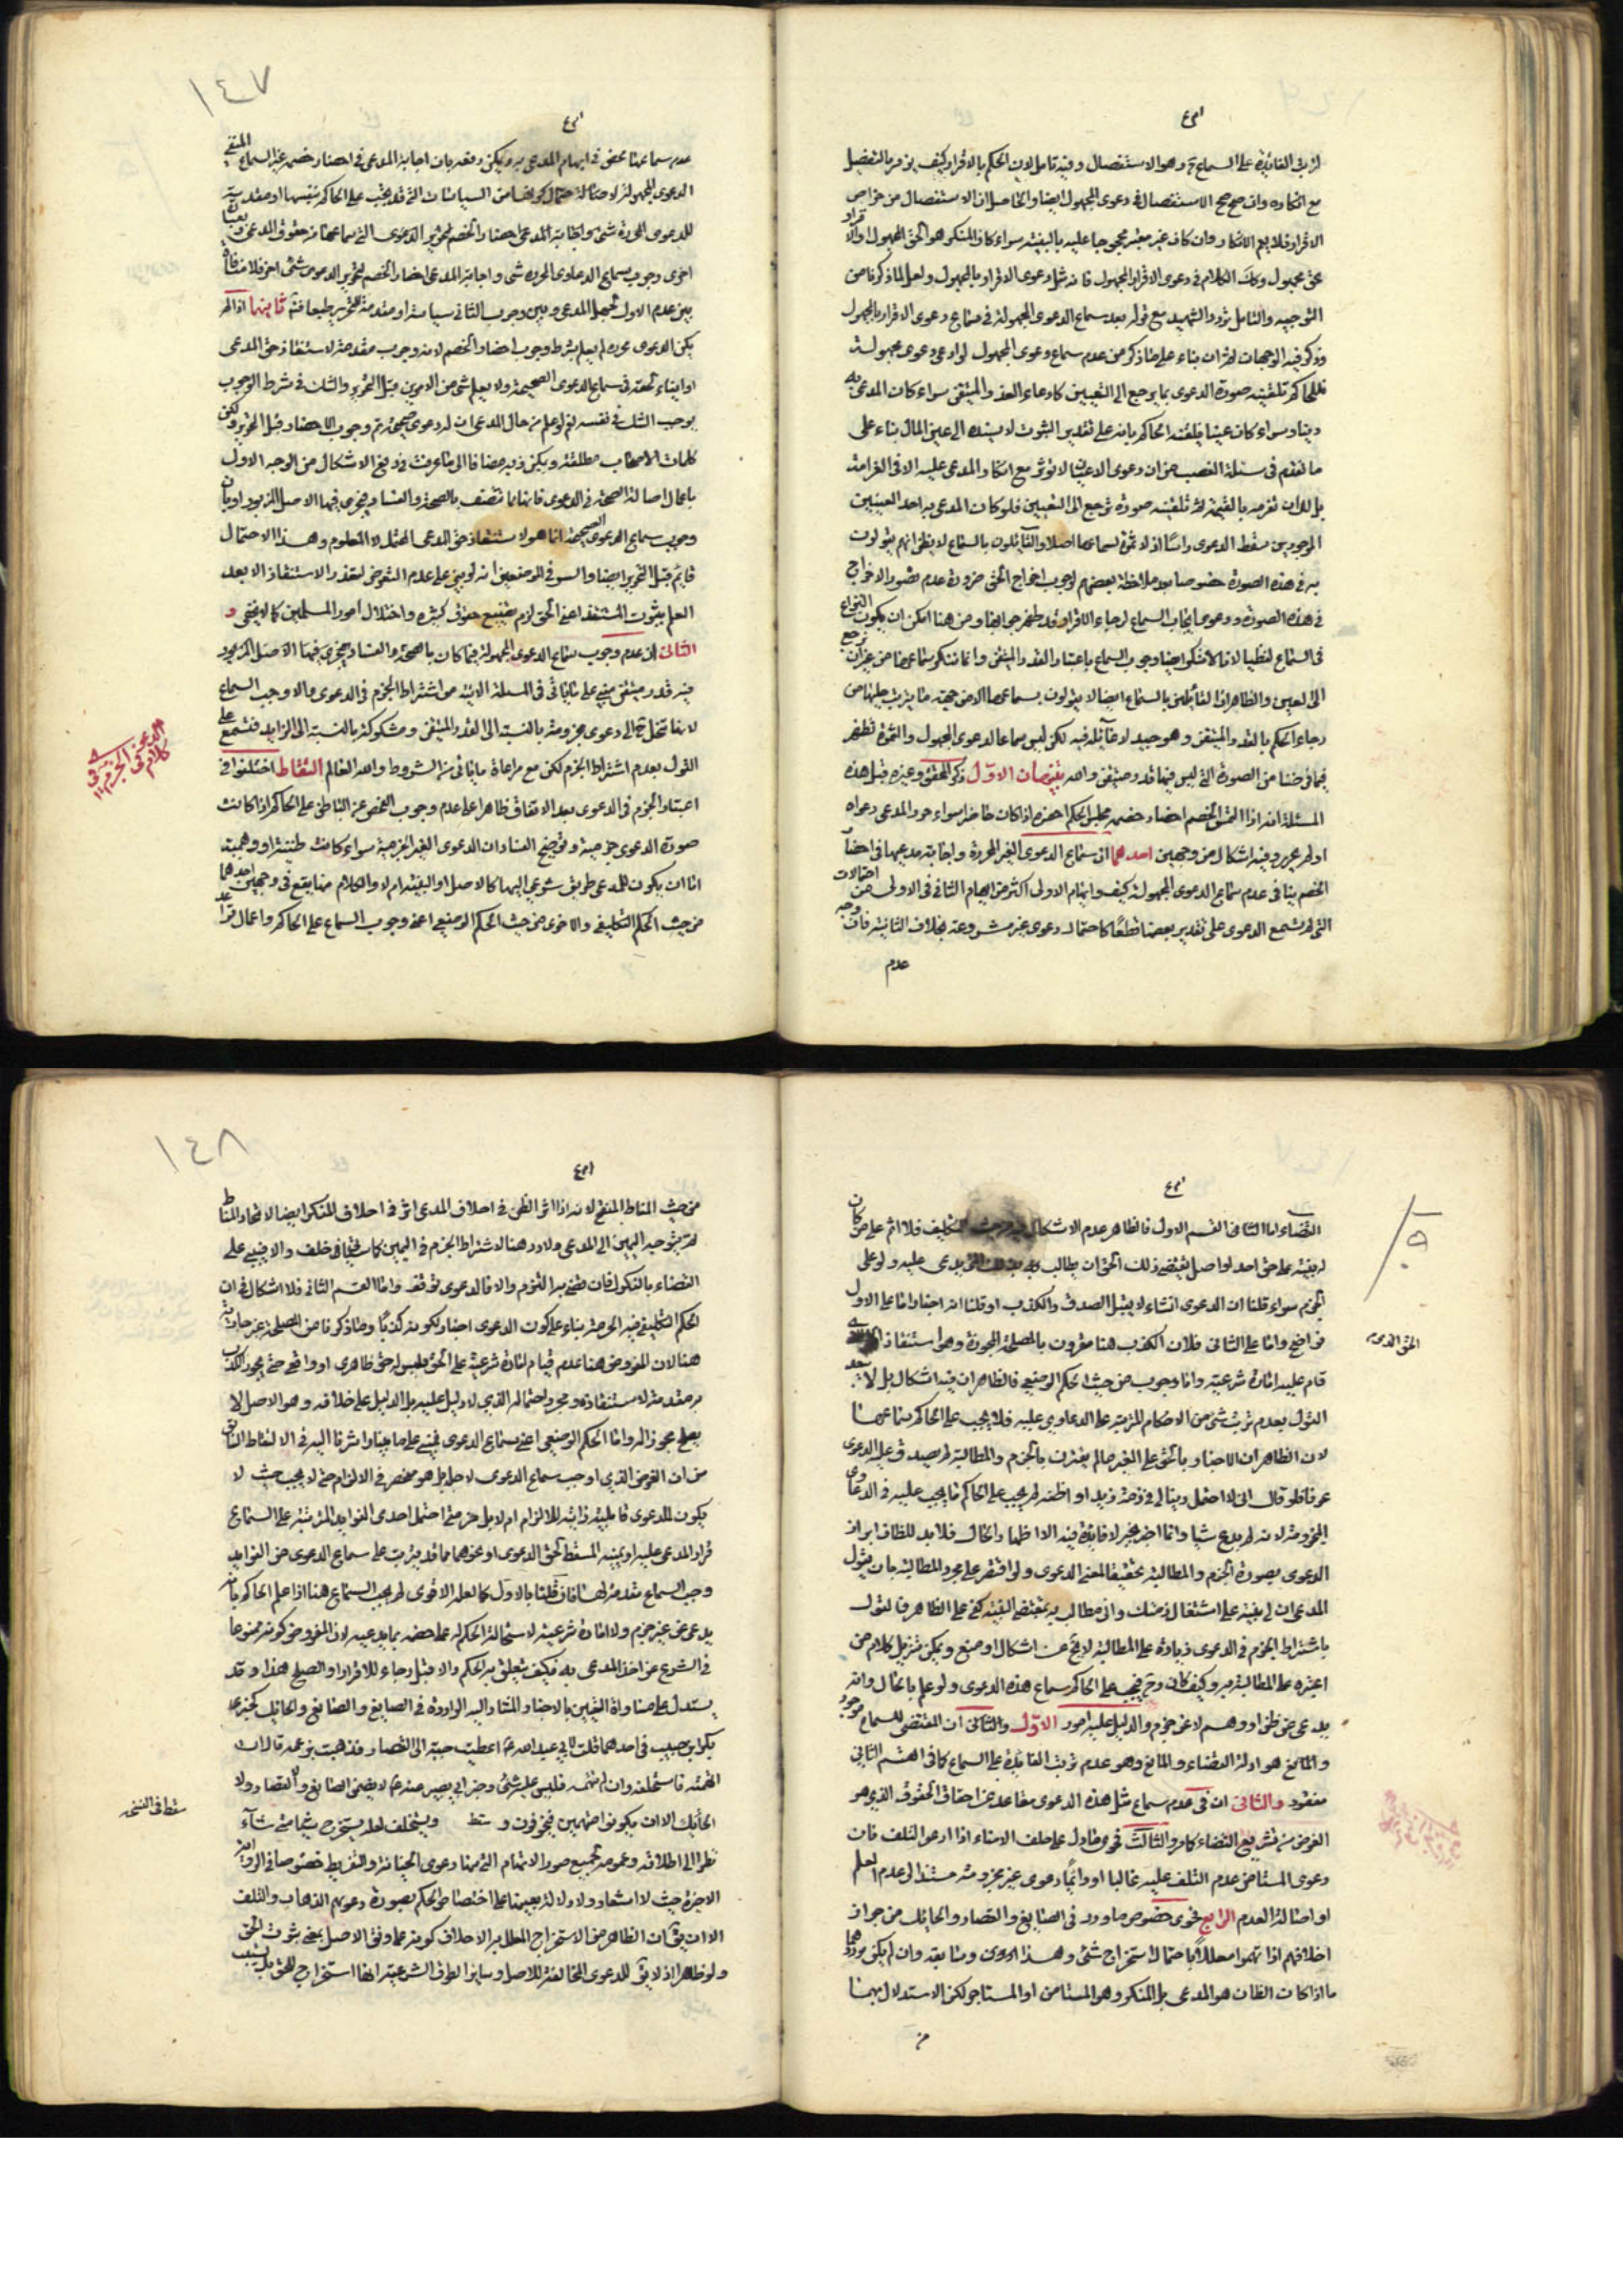 لترتب الفائدة على السماع ح وهو الاستفصال وفيه تامل لان الحكم بالاقرار كيف يؤمر بالتفصيل
مع انكاره وان صح الاستفصال في دعوى المجهول ايضا والحاصل ان الاستفصال من خواص
الاقرار فلا يعم الانكار وان كان غير معتبر محجوجا عليه بالبينة سواء كان المنكر هو الحق المجهول او الاقرار
بحق مجهول وكك الكلام في دعوى الاقرار المجهول فانه مثل دعوى الاقرار بالمجهول ولعل لما ذكرنا من
التوجيه والتامل تردد الشهيد مع قوله بعدم سماع الدعوى المجهولة في سماع دعوى الاقرار بالمجهول
وذكر فيه الوجهان ثم ان بناء على ما ذكر من عدم سماع دعوى المجهول لو ادعى دعوى مجهولة
فللحاكم تلقينه صورة الدعوى بما يرجع الى التعيين كادعاء القدر المتيقن سواء كان المدعى به
دينا وسواء كان عينا فيلقنه الحاكم بانه على تقدير الثبوت لا يسنده الى عين المال بناء على
ما تقدم في مسئلة الغصب من ان دعوى الاعيان لا تؤثر مع انكار المدعى عليه الا في الغرامة
بل لك ان تغرمه بالقيمة ثم تلقينه صورة ترجع الى التعيين فلو كان المدعى به احد العينين
الموجودين سقط الدعوى راسًا اذ لا ثمرة لسماعها اصلا والقائلون بالسماع لا يظن انهم يقولون
به في هذه الصورة خصوصا بعد ملاحظة بعضهم لوجوب اخراج الحق ضرورة عدم تصور الاخراج
في هذه الصورة ودعوى ايجاب السماع لرجاء الاقرار قد ظهر جوابها ومن هنا امكن ان يكون النزاع
في السماع لفظيا لانا لا ننكر ايضا وجوب السماع باعتبار القدر المتيقن وانما ننكر سماعها من غير ان يرجع
الى التعيين والظاهر ان القائلين بالسماع ايضا لا يقولون بسماعها الا من جهة ما يترتب عليها من
رجاء الحكم بالقدر المتيقن وهو جيد لا غائلة فيه لكن ليس سماعا لدعوى المجهول والثمرة تظهر
فيما فرضنا من الصورة التي ليس فيها قدر متيقن والله تنبيهان الاول ذكر المحقق وغيره قبل هذه
المسئلة انه اذا التمس الخصم احضار خصمه مجلس الحكم احضره اذا كان حاضرا سواء حرر المدعي دعواه
او لم يحرر وفيه اشكال من وجهين احدهما ان سماع الدعوى الغير المحررة واجابة مدعيها في احضار
الخصم ينافي عدم سماع الدعوى المجهولة كيف وابهام الاولى اكثر من ابهام الثانية في الاولى من احتمالات
التي لم تسمع الدعوى على تقدير بعضها قطعًا كاحتمال دعوى غير مشروعة بخلاف الثانية فان وجه
عدم
١٤٧
عدم سماعها محض في ابهام المدعى به ويمكن دفعه بان اجابة المدعي في احضار خصمه غير السماع المنفي
الدعوى المجهولة لاحتمال كونها من السياسات التي قد يجب على الحاكم بنفسها او مقدمة
للدعوى المحررة شئ واجابة المدعي احضار الخصم لتحرير الدعوى التي سماعها من حقوق المدعي
اخرى وجوب سماع الدعاوى المحررة شئ واجابة المدعي احضار الخصم لتحرير الدعوى شئ اخر فلا منافاة
بين عدم الاول لجهل المدعي وبين وجوب الثاني سياسة او مقدمة للتحرير طبعا فتم ثانيهما اذا لم
يكن الدعوى محررة لم يعلم شرط وجوب احضار الخصم لانه وجوب مقدمة لاستنقاذ حق المدعي
او ايفاء لحقه في سماع الدعوى الصحيحة ولا يعلم شئ من الامرين قبل التحرير والشك في شرط الوجوب
يوجب الشك في نفسه نعم لو علم من حال المدعي ان له دعوى صحيحة تم وجوب الاحضار قبل التحرير ولكن
كلمات الاصحاب مطلقة ويمكن ذبه مضافا الى ما عرفت في دفع الاشكال من الوجه الاول
باعمال اصالة الصحة في الدعوى فانها مما تتصف بالصحة والفساد فيجري فيها الاصل المزبور او بان
وجوب سماع الدعوى الصحيحة انما هو لاستنقاذ حق المدعي المحتمل لا المعلوم وهذا الاحتمال
قائم قبل التحرير ايضا والسر في الموضعين انه لو بني على عدم التعرض لتعذر الاستنقاذ الا بعد
العلم بثبوت المستنقذ اعني الحق لزم تضييع حقوق كثيرة واختلال امور المسلمين كما لا يخفى و
الثاني ان عدم وجوب سماع الدعوى المجهولة فيما كان بالصحة والفساد فيجري فيها الاصل المزبور
فيه قدر متيقن مبني على ما ياتي في المسئلة الاتية من اشتراط الجزم في الدعوى والا وجب السماع
لانها تنحل ح الى دعوى مجزومة بالنسبة الى القدر المتيقن ومشكوكة بالنسبة الى الزايد فتسمع على
القول بعدم اشتراط الجزم لكن مع مراعاة ما ياتي من الشروط والله العالم التقاط اختلفوا في
اعتبار الجزم في الدعوى بعد الاتفاق ظاهرا على عدم وجوب الفحص عن الباطن على الحاكم اذا كانت
صورة الدعوى جزمية وتوضيح المقام ان الدعوى الغير الجزمية سواء كانت ظنية او وهمية
اما ان يكون للمدعي طريق شرعي اليها كالاصل او البينة ام لا والكلام فيها يقع في وجهين احدهما
من حيث الحكم التكليفي والاخرى من حيث الحكم الوضعي اعني وجوب السماع على الحاكم واعمال قواعد
الدعوى الجزم في كلام في
القضاء اما الثاني القسم الاول فالظاهر عدم الاشكال فيه من حيث التكليف فلا اثم على من كان
له بينة على حق احد او اصل يقتضي ذلك الحق ان يطالب ويدعي عليه ولو على
الجزم سواء قلنا ان الدعوى انشاء لا يقبل الصدق والكذب او قلنا انه اخبار اما على الاول
فواضح واما على الثاني فلان الكذب هنا مقرون بالمصلحة المجوزة وهو استنقاذ
الحق الذي
قام عليه امارة شرعية واما وجوب من حيث الحكم الوضعي فالظاهر ان فيه اشكال بل لا يبعد
القول بعدم ترتب شئ من الاحكام المترتبة على الدعاوى عليه فلا يجب على الحاكم سماعها
لان الظاهر ان الاخبار بالحق على الغير ما لم يقترن بالجزم والمطالبة لم يصدق عليه الدعوى
عرفا فلو قال اني لا احتمل دينا لي في ذمة زيد او اظنه لم يجب على الحاكم ما يجب عليه في الدعاوى
المجزومة لانه لم يدع شيئا وانما اخبر بخبر لا فائدة فيه الا اظهار الحال فلا بد للظان ابراز
الدعوى بصورة الجزم والمطالبة تحقيقا لمعنى الدعوى ولو اقتصر على مجرد المطالبة بان يقول
المدعي ان لي بينة على اشتغال ذمتك واني مطالب به بمقتضى البينة كفى على الظاهر فالقول
باشتراط الجزم في الدعوى زيادة على المطالبة لا يخ عن اشكال او منع ويمكن تنزيل كلام من
اعتبره على المطالبة به وكيف كان وح فيجب على الحاكم سماع هذه الدعوى ولو علم بالحال وانه
يدعي من ظن او وهم لا عن جزم والدليل عليه امور الاول والثاني ان المقتضي للسماع موجود
والمانع هو ادلة القضاء والمانع وهو عدم ترتب الفائدة على السماع كما في القسم الثاني
مفقود والثاني ان في عدم سماع مثل هذه الدعوى مفاسد في احقاق الحقوق الذي هو
الغرض من تشريع القضاء كما مر والثالث فحوى ما دل على حلف الامناء اذا ادعوا التلف فان
دعوى المستامن عدم التلف عليه غالبا او دائمًا دعوى غير مجزومة مستندا الى عدم العلم
او اصالة العدم الرابع فحوى خصوص ما ورد في الصايغ والقصار والحائك من جواز
احلافهم اذا اتهموا معللًا باحتمال استخراج شئ وهذا الدعوى وسابقه وان لم يكن موردهما
ما اذا كان الظان هو المدعي بل المنكر وهو المستامن او المستاجر لكن الاستدلال بهما
من
١٤٨
من حيث المناط المنقح لانه اذا اثر الظن في احلاف المدعي اثر في احلاف المنكر ايضا لاتحاد المناط
ثم بتوجيه اليمين الى المدعي ولا رد هنا لاشتراط الجزم في اليمين كما سيجيئ في حلف والا فيبنى على
القضاء بالنكول فان قضي به الزم والا فالدعوى توقف واما القسم الثاني فلا اشكال في ان
الحكم التكليفي فيه الحرمة بناء على كون الدعوى اخبار لكونه كذبا وما ذكرنا من المصلحة غير جارية
هنا لان المفروض هنا عدم قيام امارة شرعية على الحق فليس له حق ظاهري او واقعي حتى يجوز الكذب
مقدمة لاستنقاذه ومجرد احتماله الذي لا دليل عليه بل الدليل على خلافه وهو الاصل لا
يصلح مجوزا له واما الحكم الوضعي اعني سماع الدعوى فيبنى على ما بينا واشرنا اليه في الالتقاط السابق
من ان الغرض الذي اوجب سماع الدعوى لاجله هل هو منحصر في الالزام حتى لا يجب حيث لا
يكون للدعوى قابلية ذاتية للالزام ام لا بل هو متى احتمل احدى الفوايد المترتبة على السماع
قرار المدعى عليه او يمينه المسقط لحق الدعوى او نحوهما مما قد يترتب على سماع الدعوى من الفوايد
وجب السماع مقدمة لها فان قلنا بالاول كما لعله الاقوى لم يجب السماع هنا اذا علم الحاكم بانه
يدعي عن غير جزم ولا امارة شرعية لاستحالة الحكم له على خصمه بما يدعيه لان المفروض كونه ممنوعا
في الشرع عن اخذ المدعى به فكيف يتعلق به الحكم والا قبل رجاء للاقرار او الصلح هذا وقد
يستدل على سماع الدعوى الغير بالاخبار المشار اليه الواردة في الصايغ والصانع والحائك كخبر
بكر بن حبيب في احدهما قلت لابي عبد الله ع اعطيت جبة الى القصار فذهبت بزعمه قال ان
اتهمته فاستحلفه وان لم تتهمه فليس عليه شئ وخبر ابي بصير عنه ع لا يضمن الصايغ ولا القصار ولا
الحائك الا ان يكونوا متهمين فيخوفون و سقط ويستحلف لعله يستخرج شيئا منه
سقط في النسخة
نظرا الى اطلاقه وعمومه لجميع صور الاتهام التي منها دعوى الخيانة والتفريط خصوصا في الرواية
الاخيرة حيث لا اشعار ولا دلالة بعينها على اختصاص الحكم بصورة دعويهم الذهاب والتلف
الا ان يق ان الظاهر من الاستخراج المعلل به الاحلاف كونه على وفق الاصل بمعنى ثبوت الحق
ولو ظاهرا اذ لا يق للدعوى المخالفة للاصل وساير الطرق الشرعية انها استخراج للحق